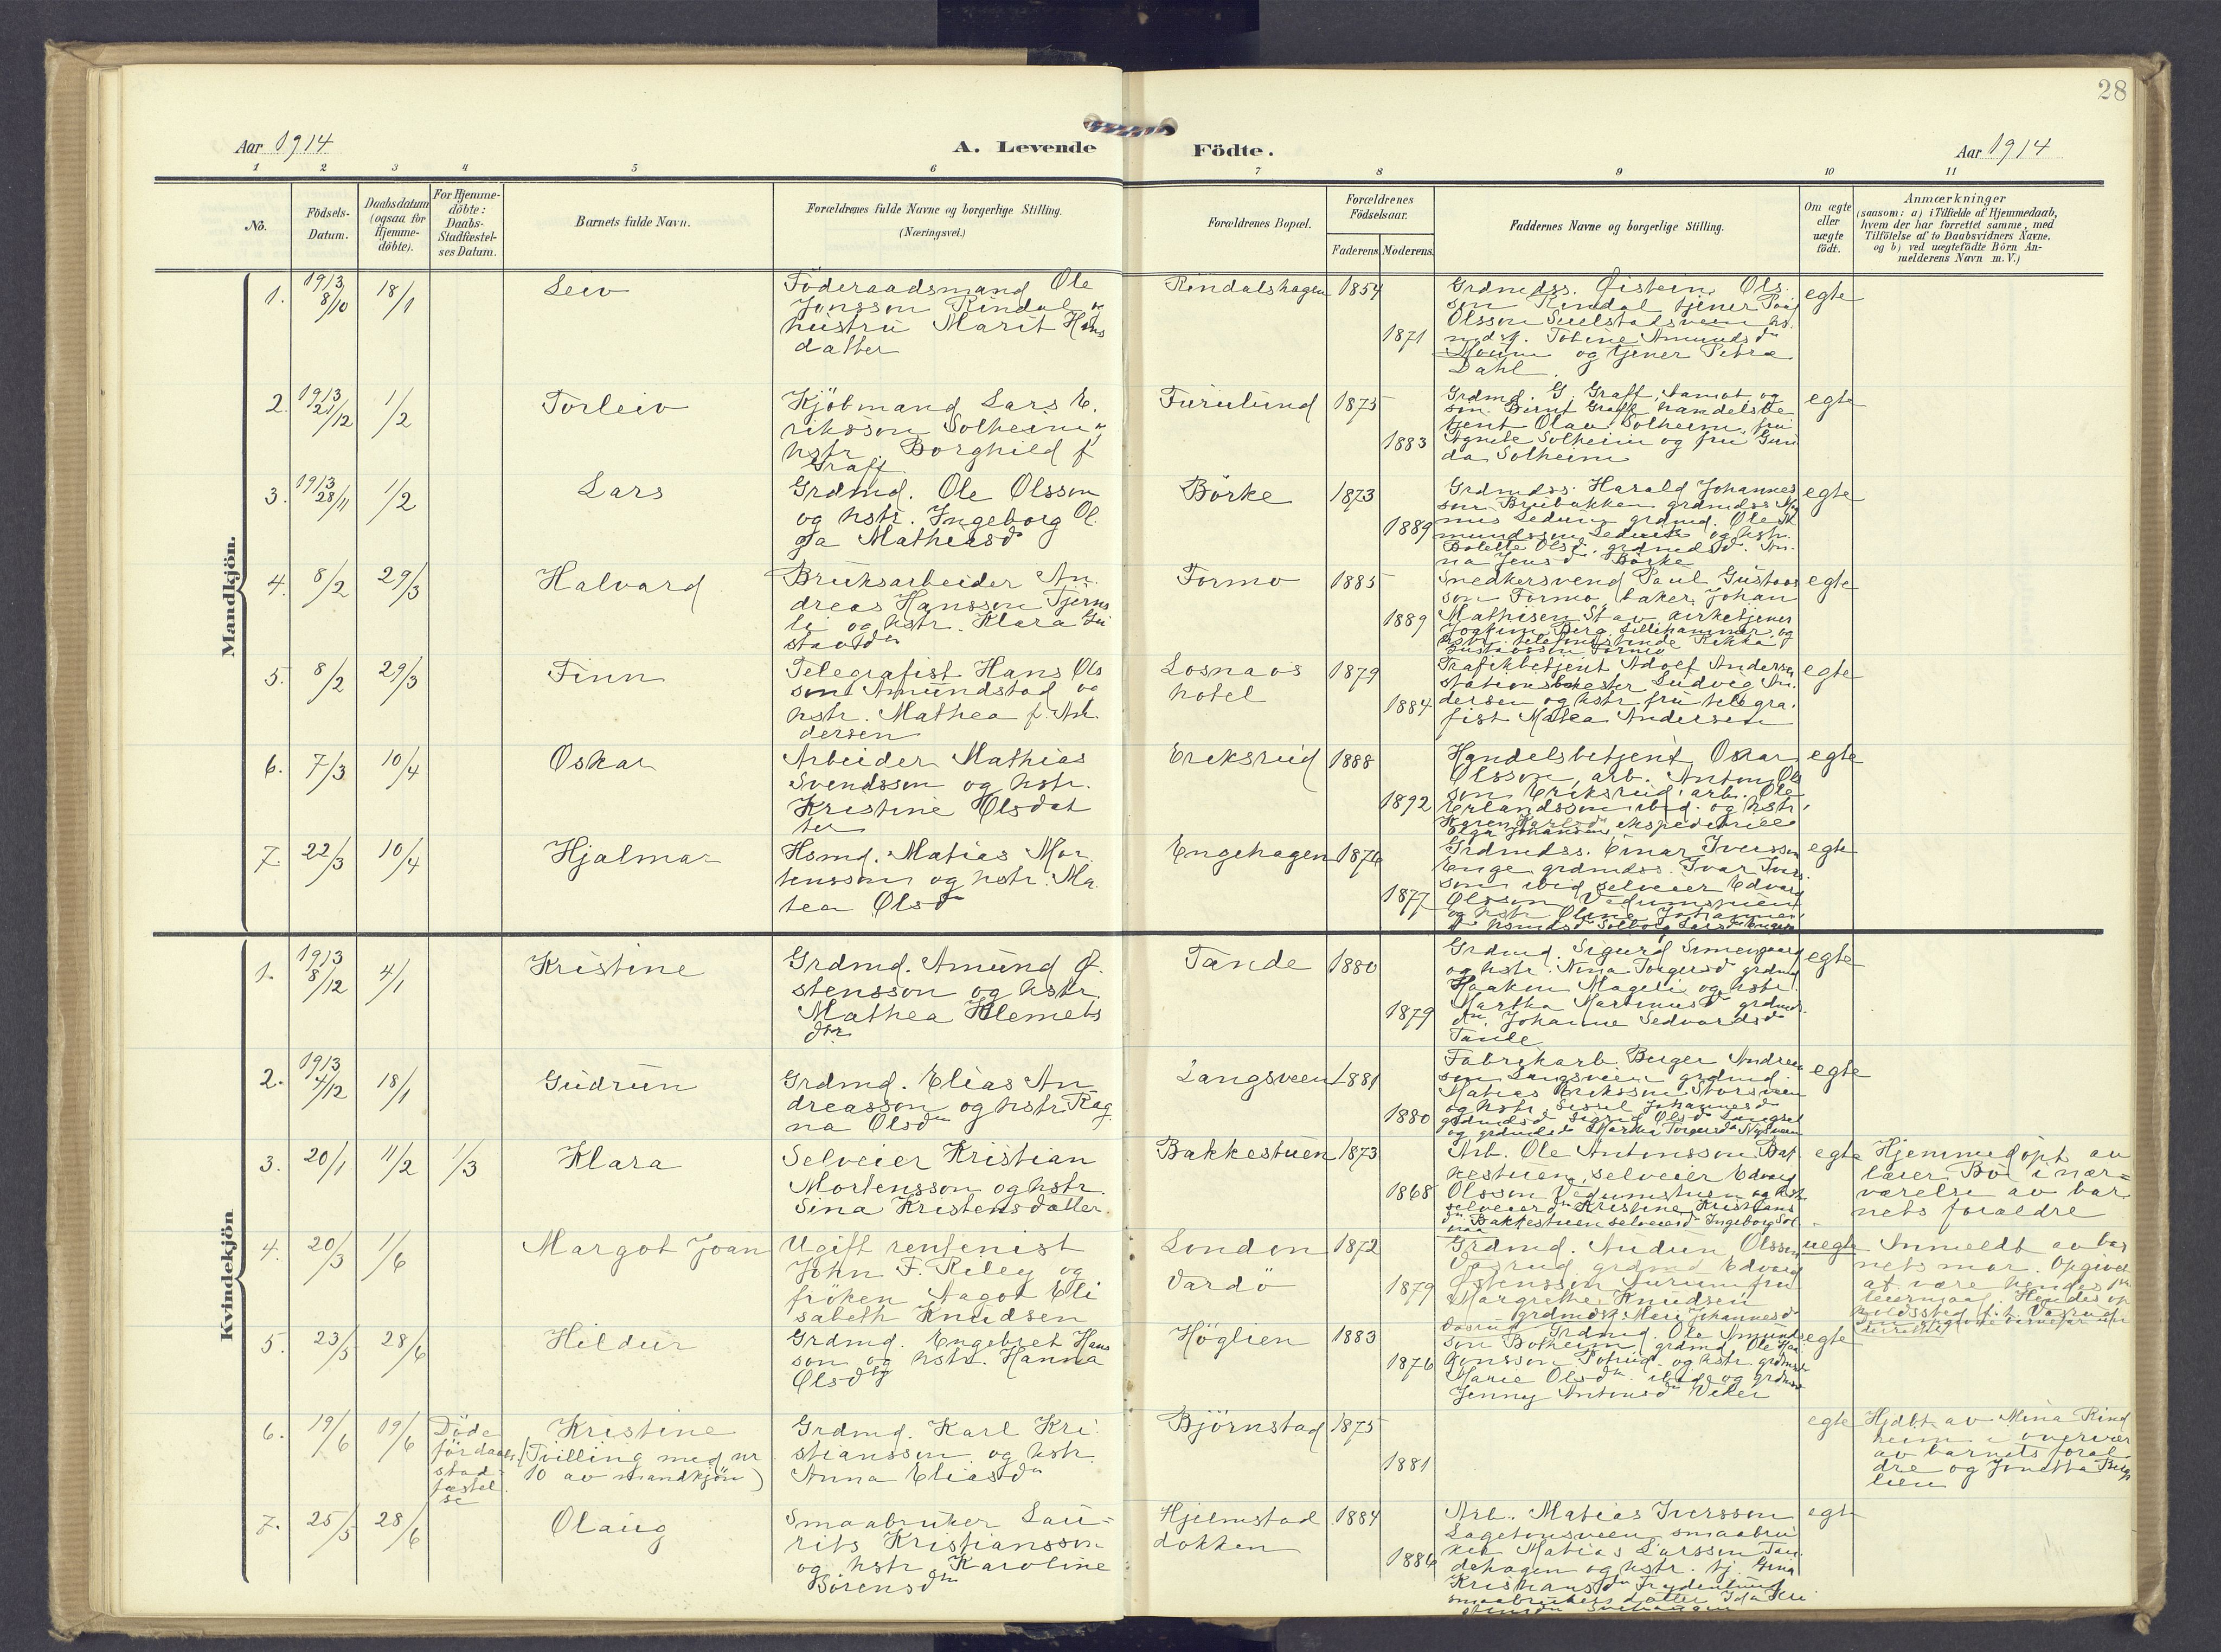 28
Aar 1914
A. Levende Födte.
Aar 1914
1 2 3 4 5 6 7 8 9 10 11
No.
Födsels-Datum.
Daabsdatum (ogsaa for Hjemme-döbte).
For Hjemme-döbte: Daabs-Stadfæstel-ses Datum.
Barnets fulde Navn.
Forældrenes fulde Navne og borgerlige Stilling.
(Næringsvei.)
Forældrenes Bopæl.
Forældrenes Födselsaar.
Faderens. Moderens.
Faddernes Navne og borgerlige Stilling.
Om ægte eller uægte födt.
Anmærkninger
(saasom: a) i Tilfælde af Hjemmedaab,
hvem der har forrettet samme, med
Tilföielse af to Daabsvidners Navne,
og b) ved uægtefödte Börn An-
melderens Navn m. V.)
Mandkjön.
1. 1913 8/10 18/1 Leiv
Föderaadsmand Ole
Jonsson Rindal og
hustru Marit Hans
datter
Rindalshagen 1854 1871
Grdmdss. Øistein Ols
son Rindal tjener
Olsson
Tobine Amundsdr
og tjener Petra
Dahl
egte
2. 1913 21/12 1/2 Torleiv
Kjöbmand Lars E.
riksson Solheim og
hstr. Borghild f
Graff
Furulund 1875 1883
Grdmd. G. Graff, og
sön Bernt Graff handelsbe
tjent Olav Solheim, fru
Agnete Solheim og fru Gun
da Solheim
egte
3. 1913 28/11 1/2 Lars
Grdmd. Ole Olsson
og hstr. Ingeborg Ol.
ga Mathiasdr
Börke 1873 1889
Grdmdss. Harald Johannes
son grdmdss
grdmd. Ole
og hstr.
Bolette Olsd. grdmdsd. An.
na Jensd Börke
egte
4. 8/2 29/3 Halvard
Bruksarbeider An.
dreas Hansson Tjerns
li og hstr. Klara Gu
stavsdr
Formo 1885 1889
Snedkersvend Paul Gustavs
son Formo baker Johan
Mathisen Stav, kirketjener
Berg Lillehammer og
Rikka
Formo
egte
5. 8/2 29/3 Finn
Telegrafist Hans Ols
son Amundstad og
hstr. Mathea f. An.
dersen
Losnaos
hotel
1879 1884
Trafikbetjent Adolf Andersen
stationsmester Ludvig An.
dersen og hstr fru telegra.
fist Matea Andersen
egte
6. 7/3 10/4 Oskar
Arbeider Mathias
Svendsson og hstr.
Kristine Olsdat
ter
Eriksrud 1888 1892
Handelsbetjent Oskar
Olsson, arb. Anton Ols
son Eriksrud arb. Ole
Erlandsson ibid. og hstr.
Karen Karlsdr ekspeditrice
Olga Johansen
egte
7. 22/3 10/4 Hjalmar
Hsmd. Matias Mor
tensson og hstr. Ma.
tea Olsdr
Engehagen 1876 1877
Grdmdss. Einar Iversson
Enge grdmdss. Ivar Ivers.
son ibid selveier Edvard
Olsson Vedumstuen
og hstr Oline Johannes
egte
Kvindekjön
1. 1913 8/12 4/1 Kristine
Grdmd. Amund Ø.
stensson og hstr.
Mathea Klemets
dtr
Tande 1880 1879
Grdmd. Sigurd
og hstr. Nina Torgersdr grdmd
Haakon Mageli og hstr.
Martha Martinusdr grdmds
dr. Johanne Sedvardsdr
Tande
egte
2. 1913 4/12 18/1 Gudrun
Grdmd. Elias An
dreasson og hstr Rag
na Olsdr
Langsveen 1881 1880
Fabrikarb. Berger Andreas
son Langsveen grdmd
Matias Eriksson Storsveen
og hstr. Sissel Johannesdr
grdmdsd Sigrid Olsdr
og grdmdsd Martha Torgersdr
egte
3. 20/1 11/2 1/3 Klara
Selveier Kristian
Mortensson og hstr.
Sina Kristensdatter
Bakkestuen 1873 1868
Arb. Ole Antonsson Bak
kestuen, selveier Edvard
Olsson Vedumstuen og hstr
selveierd Kristine Kristians
dr Bakkestuen selveierd Ingeborg
egte
Hjemmedöpt av
læier Bö i nær=
værelse av bar
nets forældre
4. 20/3 1/6 Margot Joan
Ugift rentenist
John F. Riley og
fröken Aagot Eli
sabeth Knudsen
London
Vardö
1872 1879
Grdmd. Audun Olsson
Vasrud grdmd Edvard
Østensson Furum fru
Margrethe Knudsen
grdmdsk Mari Johannesd
Vasrud
uegte
Anmeldt av bar
nets mor. Opgivet
at være hendes 1ste
leiermaal. Hendes op
holdssted f. t. Vasrud
5. 23/5 28/6 Hildur
Grdmd. Engebret Hans
son og hstr. Hanna
Olsdtr
Höglien 1883 1876
Grdmd. Ole Amunds
son Botheim grdmd Ole Haa
gonsson og hstr.
Marie Olsdr. ibid og grdmds
Jenny Antonsdr
egte
6. 19/6 19/6
Döde
för daabs
stad=
fæstel
se
Kristine
(Tvilling med nr
10 av mandkjön)
Grdmd. Karl Kri
stiansson og hstr.
Anna Eliasdr
Björnstad 1875 1881
egte
Hjdbt. av Mina Rind
heim i overvær
av barnets foræl
dre og Jonetta Berg
lien
7. 25/5 28/6 Olaug
Smaabruker Lau=
rits Kristiansson
og hstr. Karoline
Sörensdr
Hjelmstad
dokken
1884 1886
Arb. Matias Iversson
smaabru
ker Matias Larsson Tan
dehagen og hstr. tj. Gina
Kristiansdr Frydenlund
smaabrukersdatter Ida Kri
egte